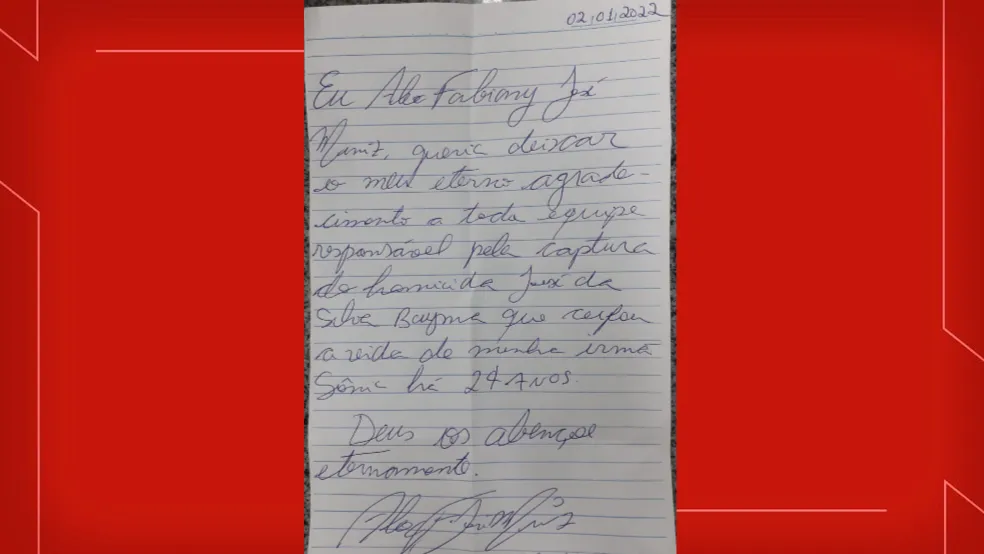 02,01,2022
Eu Fabiany José
Muniz, queria deixar
o meu eterno agrade-
cimento a toda equipe
responsável pela captura
do homicida José da
Silva que ceifou
a vida de minha irmã
Sônia há ANOS.
Deus os abençoe
eternamente.